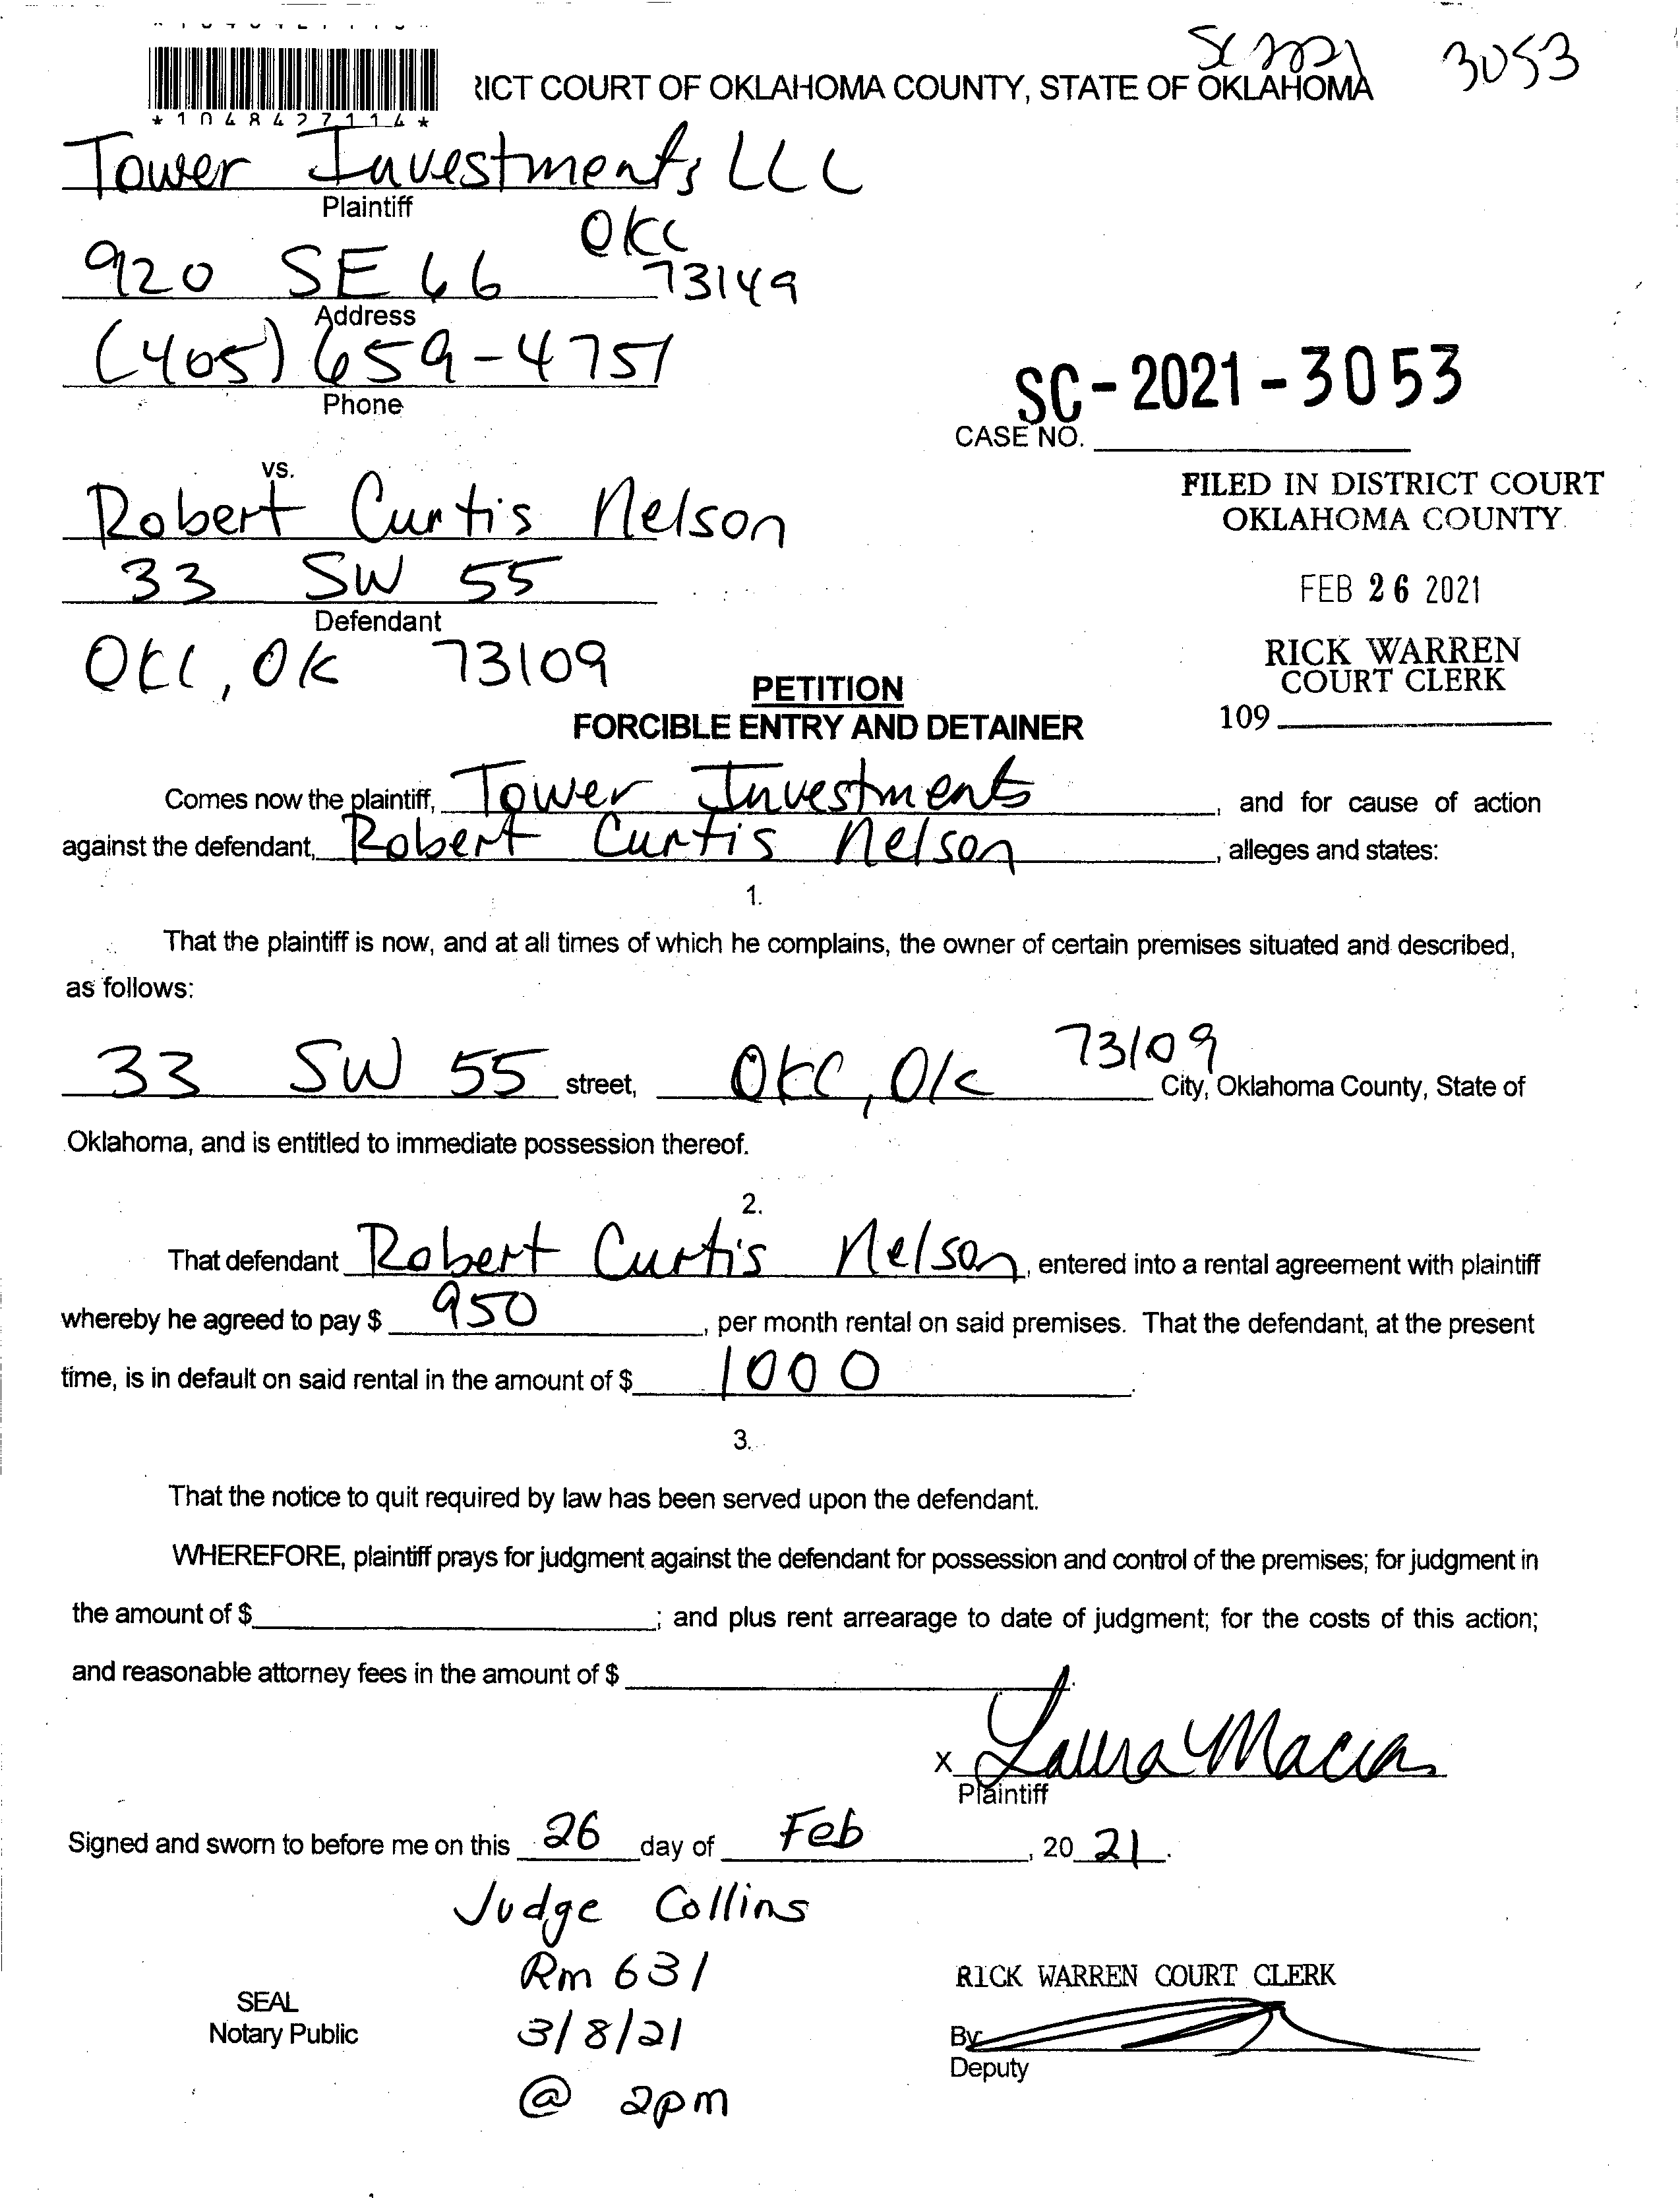 SC 2021 3053
RICT COURT OF OKLAHOMA COUNTY, STATE OF OKLAHOMA
* 1 0 4 8 4 2 7 1 1 4 *
Tower Investments LLC
Plaintiff
OKC
920 SE 66 73149
Address
(405) 659-4751
Phone
SC-2021-3053
CASE NO.
vs.
FILED IN DISTRICT COURT
OKLAHOMA COUNTY
Robert Curtis Nelson
33 SW 55
FEB 26 2021
Defendant
OKC, OK 73109
RICK WARREN
COURT CLERK
PETITION
109
FORCIBLE ENTRY AND DETAINER
Comes now the plaintiff, Tower Investments, and for cause of action
against the defendant, Robert Curtis Nelson, alleges and states:
1.
That the plaintiff is now, and at all times of which he complains, the owner of certain premises situated and described,
as follows:
33 SW 55 street, OKC, OK 73109 City, Oklahoma County, State of
Oklahoma, and is entitled to immediate possession thereof.
2.
That defendant Robert Curtis Nelson, entered into a rental agreement with plaintiff
whereby he agreed to pay $ 950, per month rental on said premises. That the defendant, at the present
time, is in default on said rental in the amount of $ 1000.
3.
That the notice to quit required by law has been served upon the defendant.
WHEREFORE, plaintiff prays for judgment against the defendant for possession and control of the premises; for judgment in
the amount of $ ; and plus rent arrearage to date of judgment; for the costs of this action;
and reasonable attorney fees in the amount of $ .
X Laura Macias
Plaintiff
Signed and sworn to before me on this 26 day of Feb, 20 21.
Judge Collins
Rm 631
RICK WARREN COURT CLERK
SEAL
Notary Public
3/8/21
By
Deputy
@ 2pm